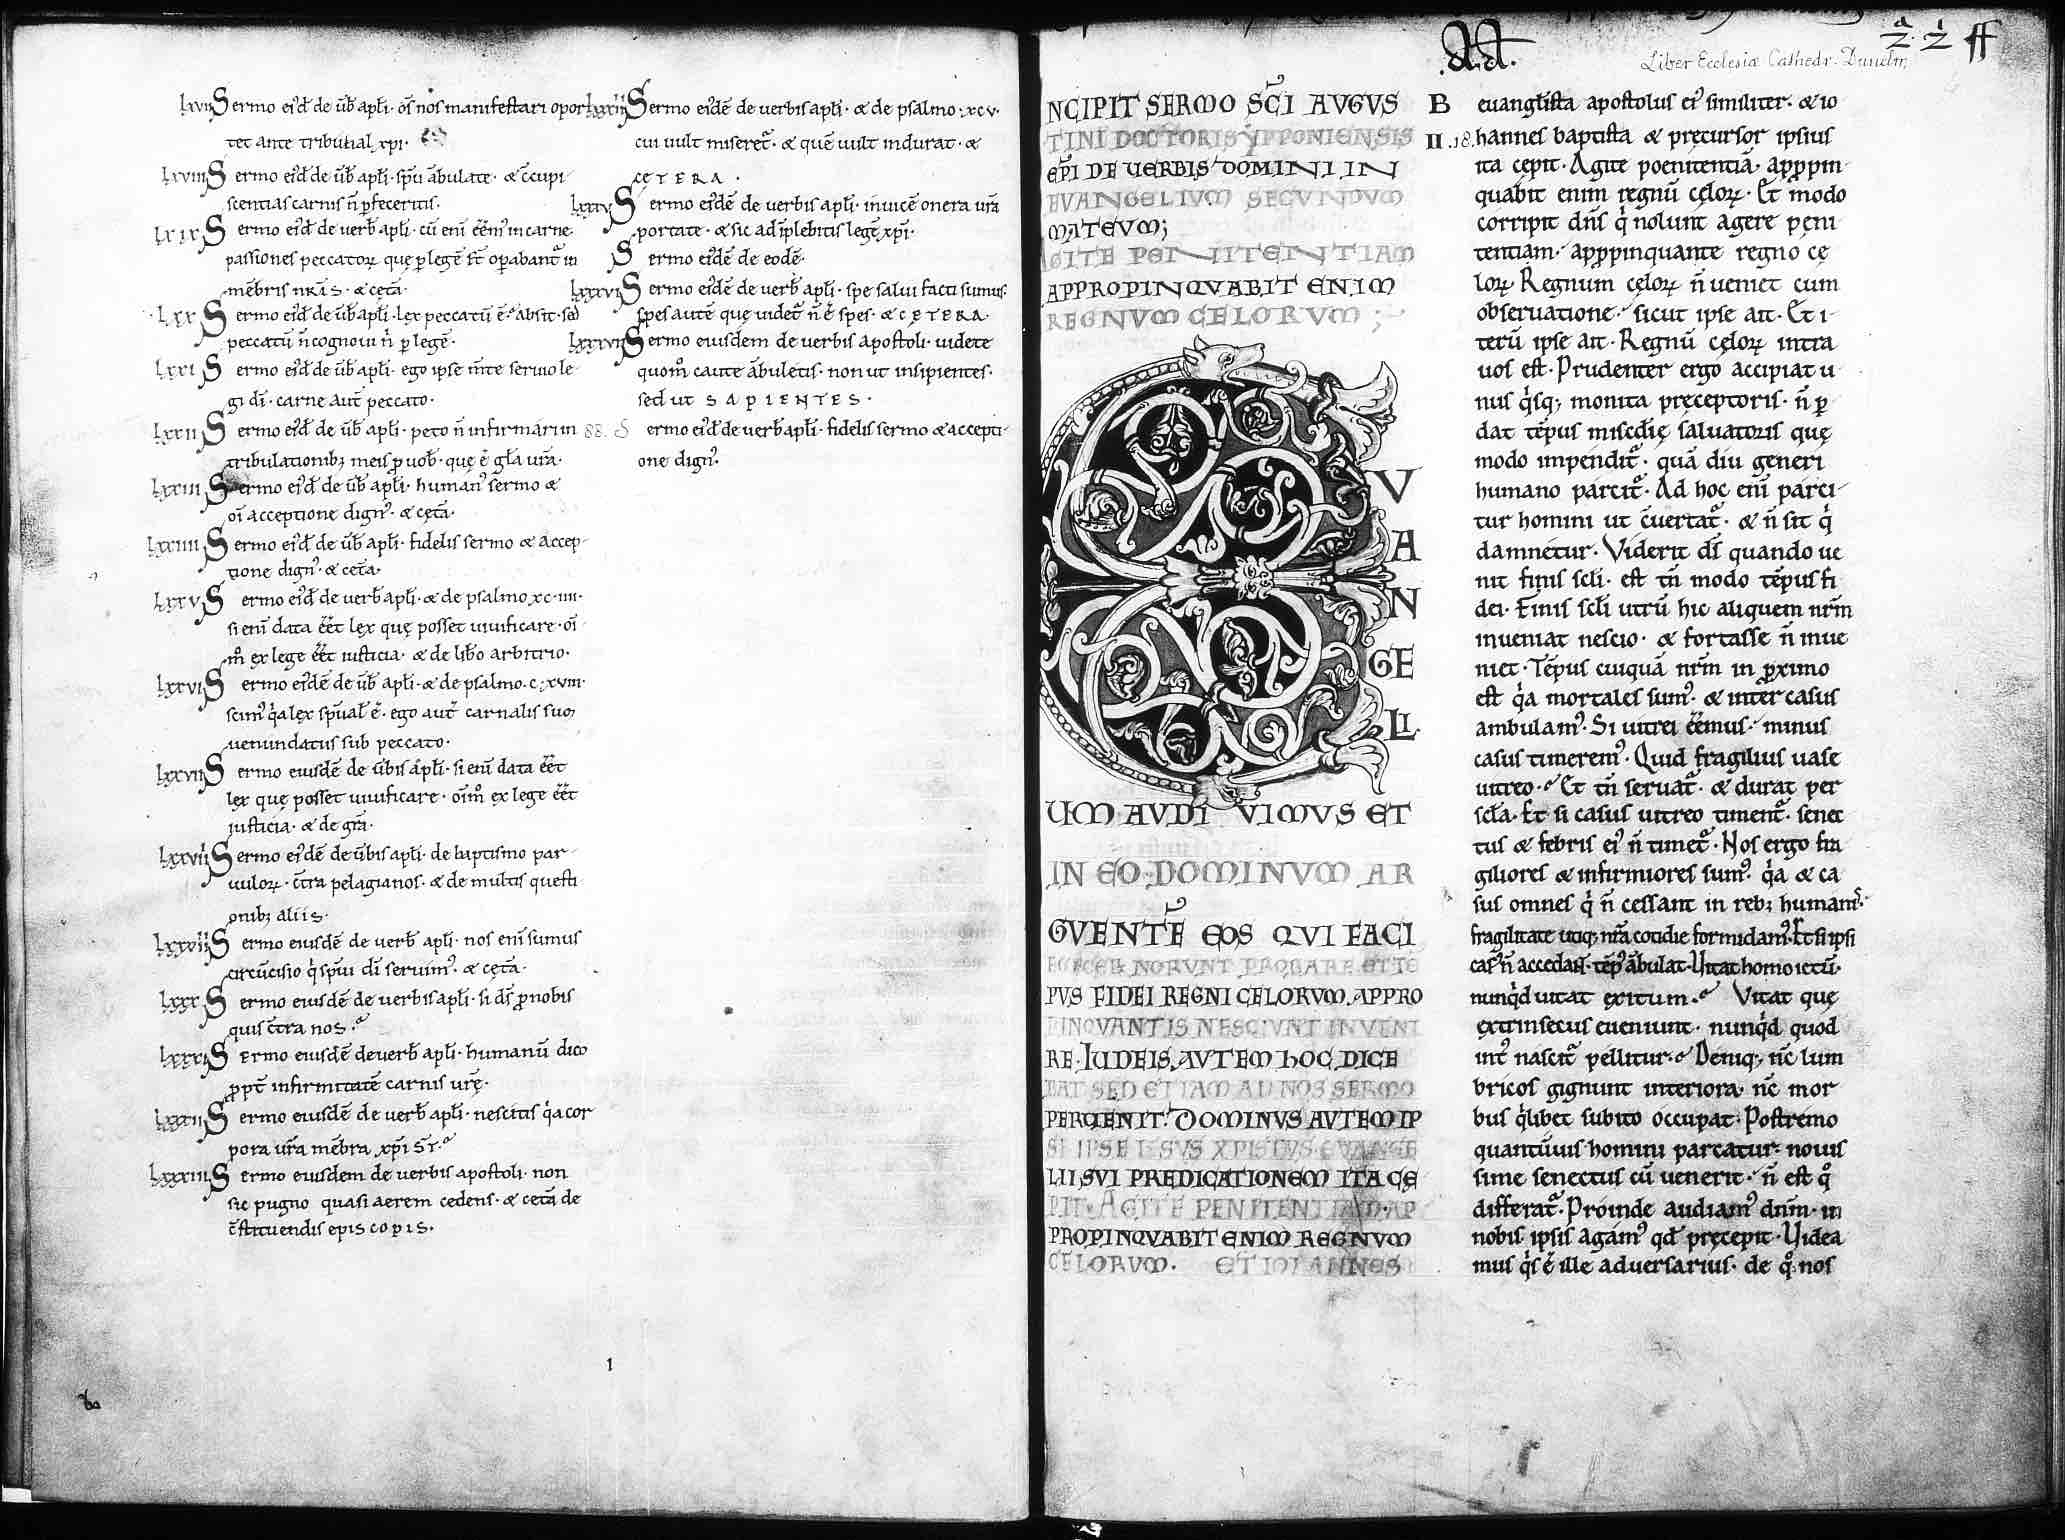 lxvii Sermo eiꝰd̄ de ūb̄ apl̄i · oīs nos manifestari opor
tet ante tribunal xp̄i ·
lxviii Sermo eiꝰd̄ de ūb̄ apl̄i · sp̄u ābulate · & c̄cupi
scentias carnis n̄ ꝑfeceritis ·
lxix Sermo eiꝰd̄ de uerb̄ apl̄i · cū enī eēmꝰ in carne ·
passiones peccatoꝝ quę ꝑ legē st̄ oꝑabant᷑ in
mēbris nr̄is · & cęt̄a ·
lxx Sermo eiꝰd̄ de ūb̄ apl̄i · lex peccatū ē · absit · sed
peccatū n̄ cognoui n̄ ꝑ legē ·
lxxi Sermo eiꝰd̄ de ūb̄ apl̄i · ego ipse m̄te seruio le
gi dī · carne aut̄ peccato ·
lxxii Sermo eiꝰd̄ de ūb̄ apl̄i · peto n̄ infirmari in
tribulationibꝫ meis ꝓ uob̄ · quę ē gl̄a ur̄a ·
lxxiii Sermo eiꝰd̄ de ūb̄ apl̄i · humanꝰ sermo &
oī acceptione dignꝰ · & cęt̄a ·
lxxiiii Sermo eiꝰd̄ de ūb̄ apl̄i · fidelis sermo & accep
tione dignꝰ · & cet̄a ·
lxxv Sermo eiꝰd̄ de uerb̄ apl̄i · & de psalmo xc · iiii ·
si enī data eēt lex quę posset uiuificare · oī
mͦ ex lege eēt iusticia · & de lib̄o arbitrio ·
lxxvi Sermo eiꝰdē de ūb̄ apl̄i · & de psalmo · c · xviii ·
scimꝰ qͥa lex sp̄ual̄ ē · ego aut̄ carnalis sū
uenundatus sub peccato ·
lxxvii Sermo eiusdē de ūbis apl̄i · si enī data eēt
lex quę posset uiuificare · oīmͦ ex lege eēt
iusticia · & de gr̄a ·
lxxviii Sermo eiꝰdē de ūbis apl̄i · de baptismo par
uuloꝝ · c̄tra pelagianos · & de multis questi
onibꝫ aliis ·
lxxviiii Sermo eiusdē de uerb̄ apl̄i · nos enī sumus
circūcisio qͥ sp̄ui dī seruimꝰ · & cęt̄a ·
lxxx Sermo eiusdē de uerbis apl̄i · si ds̄ ꝓ nobis
quis c̄tra nos ·
lxxxi Sermo eiusdē de uerb̄ apl̄i · humanū dico
ꝓpt̄ infirmitatē carnis ur̄ę ·
lxxxii Sermo eiusdē de uerb̄ apl̄i · nescitis qͥa cor
pora ur̄a mēbra xp̄i st̄ ·
lxxxiii Sermo eiusdem de uerbis apostoli · non
sic pugno quasi aerem cedens · & cet̄a de
c̄stituendis episcopis ·
lxxxiiii Sermo eiꝰdē de uerbis apl̄i · & de psalmo · xcv ·
cui uult miseret᷑ · & quē uult indurat · &
CĘTERA ·
lxxxv Sermo eiꝰdē de uerbis apl̄i · inuicē onera ur̄a
portate · & sic adīplebitis legē xp̄i ·
Sermo eiꝰdē de eodē ·
lxxxvi Sermo eiꝰdē de uerb̄ apl̄i · spe salui facti sumus ·
spes autē quę uidet᷑ n̄ ē spes · & CĘTERA ·
lxxxvii Sermo eiusdem de uerbis apostoli · uidete
quomͦ caute ābuletis · non ut insipientes ·
sed ut SAPIENTES ·
88. Sermo eiꝰd̄ de uerb̄ apl̄i · fidelis sermo & accepti
one dignꝰ ·
1
·A·A·
2 2 ff
Liber Ecclesiæ Cathedr. Dunelm
NCIPIT SERMO SC̄I AVGVS
TINI DOCTORIS YPPONIENSIS
EP̄I DE VERBIS DOMINI IN
EVANGELIVM SECVNDVM
MATEVM;
AGITE PENITENTIAM
APPROPINQVABIT ENIM
REGNVM CELORVM;
E
V
A
N
GE
LI
UM AVDIVIMVS ET
IN EO DOMINVM AR
GVENTĒ EOS QVI FACI
EM CELI NORVNT PROBARE ET TE
PVS FIDEI REGNI CELORVM APPRO
PINQVANTIS NESCIVNT INVENI
RE · IUDEIS AVTEM HOC DICE
BAT SED ETIAM AD NOS SERMO
PERVENIT · DOMINVS AVTEM IP
SE IESVS XPISTVS EVANGE
LII SVI PREDICATIONEM ITA CĘ
PIT · AGITE PENITENTIAM · AP
PROPINQVABIT ENIM REGNVM
CELORVM · ET IOHANNES
B
II .18.
euangl̄ista apostolus eiꝰ similiter · & io
hannes baptista & pręcursor ipsius
ita cępit · Agite poenitentiā · apꝓpin
quabit enim regnū cęloꝝ · Et modo
corripit dn̄s qͥ nolunt agere pęni
tentiam · apꝓpinquante regno cę
loꝝ Regnum cęloꝝ n̄ ueniet cum
obseruatione · sicut ipse ait · Et i
terū ipse ait · Regnū cęloꝝ intra
uos est · Prudenter ergo accipiat u
nus qͥsqꝫ monita pręceptoris · n̄ ꝑ
dat tēpus miscd̄ię saluatoris quę
modo impendit᷑ · quā diu generi
humano parcit᷑ · Ad hoc enī parci
tur homini ut c̄uertat᷑ · & n̄ sit qͥ
damnetur · Viderit ds̄ quando ue
nit finis scl̄i · est tn̄ modo tēpus fi
dei · Finis scl̄i utrū hic aliquem nr̄m
inueniat nescio · & fortasse n̄ inue
niet · Tēpus cuiquā nr̄m in ꝓximo
est qͥa mortales sumꝰ · & inter casus
ambulamꝰ · Si uitrei eēmus · minus
casus timeremꝰ · Quid fragilius uase
uitreo · Et tn̄ seruat᷑ · & durat per
scl̄a · Et si casus uitreo timent᷑ · senec
tus & febris eiꝰ n̄ timet᷑ · Nos ergo fra
giliores & infirmiores sumꝰ · qͥa & ca
sus omnes qͥ n̄ cessant in rebꝫ humanis ·
fragilitate utiqꝫ nr̄a cotidie formidamꝰ · Et si ipsi
casꝰ n̄ accedant · tēpꝰ ābulat · Uitat homo ictū ·
nunqͥd uitat exitum · Vitat quę
extrinsecus eueniunt · nunqͥd quod
intꝰ nascit᷑ pellitur · Deniqꝫ nc̄ lum
bricos gignunt interiora · nc̄ mor
bus qͥlibet subito occupat · Postremo
quantūuis homini parcatur · nouis
sime senectus cū uenerit · n̄ est qͦ
differat᷑ · Proinde audiamꝰ dn̄m · in
nobis ipsis agamꝰ qd̄ pręcepit · Uidea
mus qͥs ē ille aduersarius · de qͦ nos